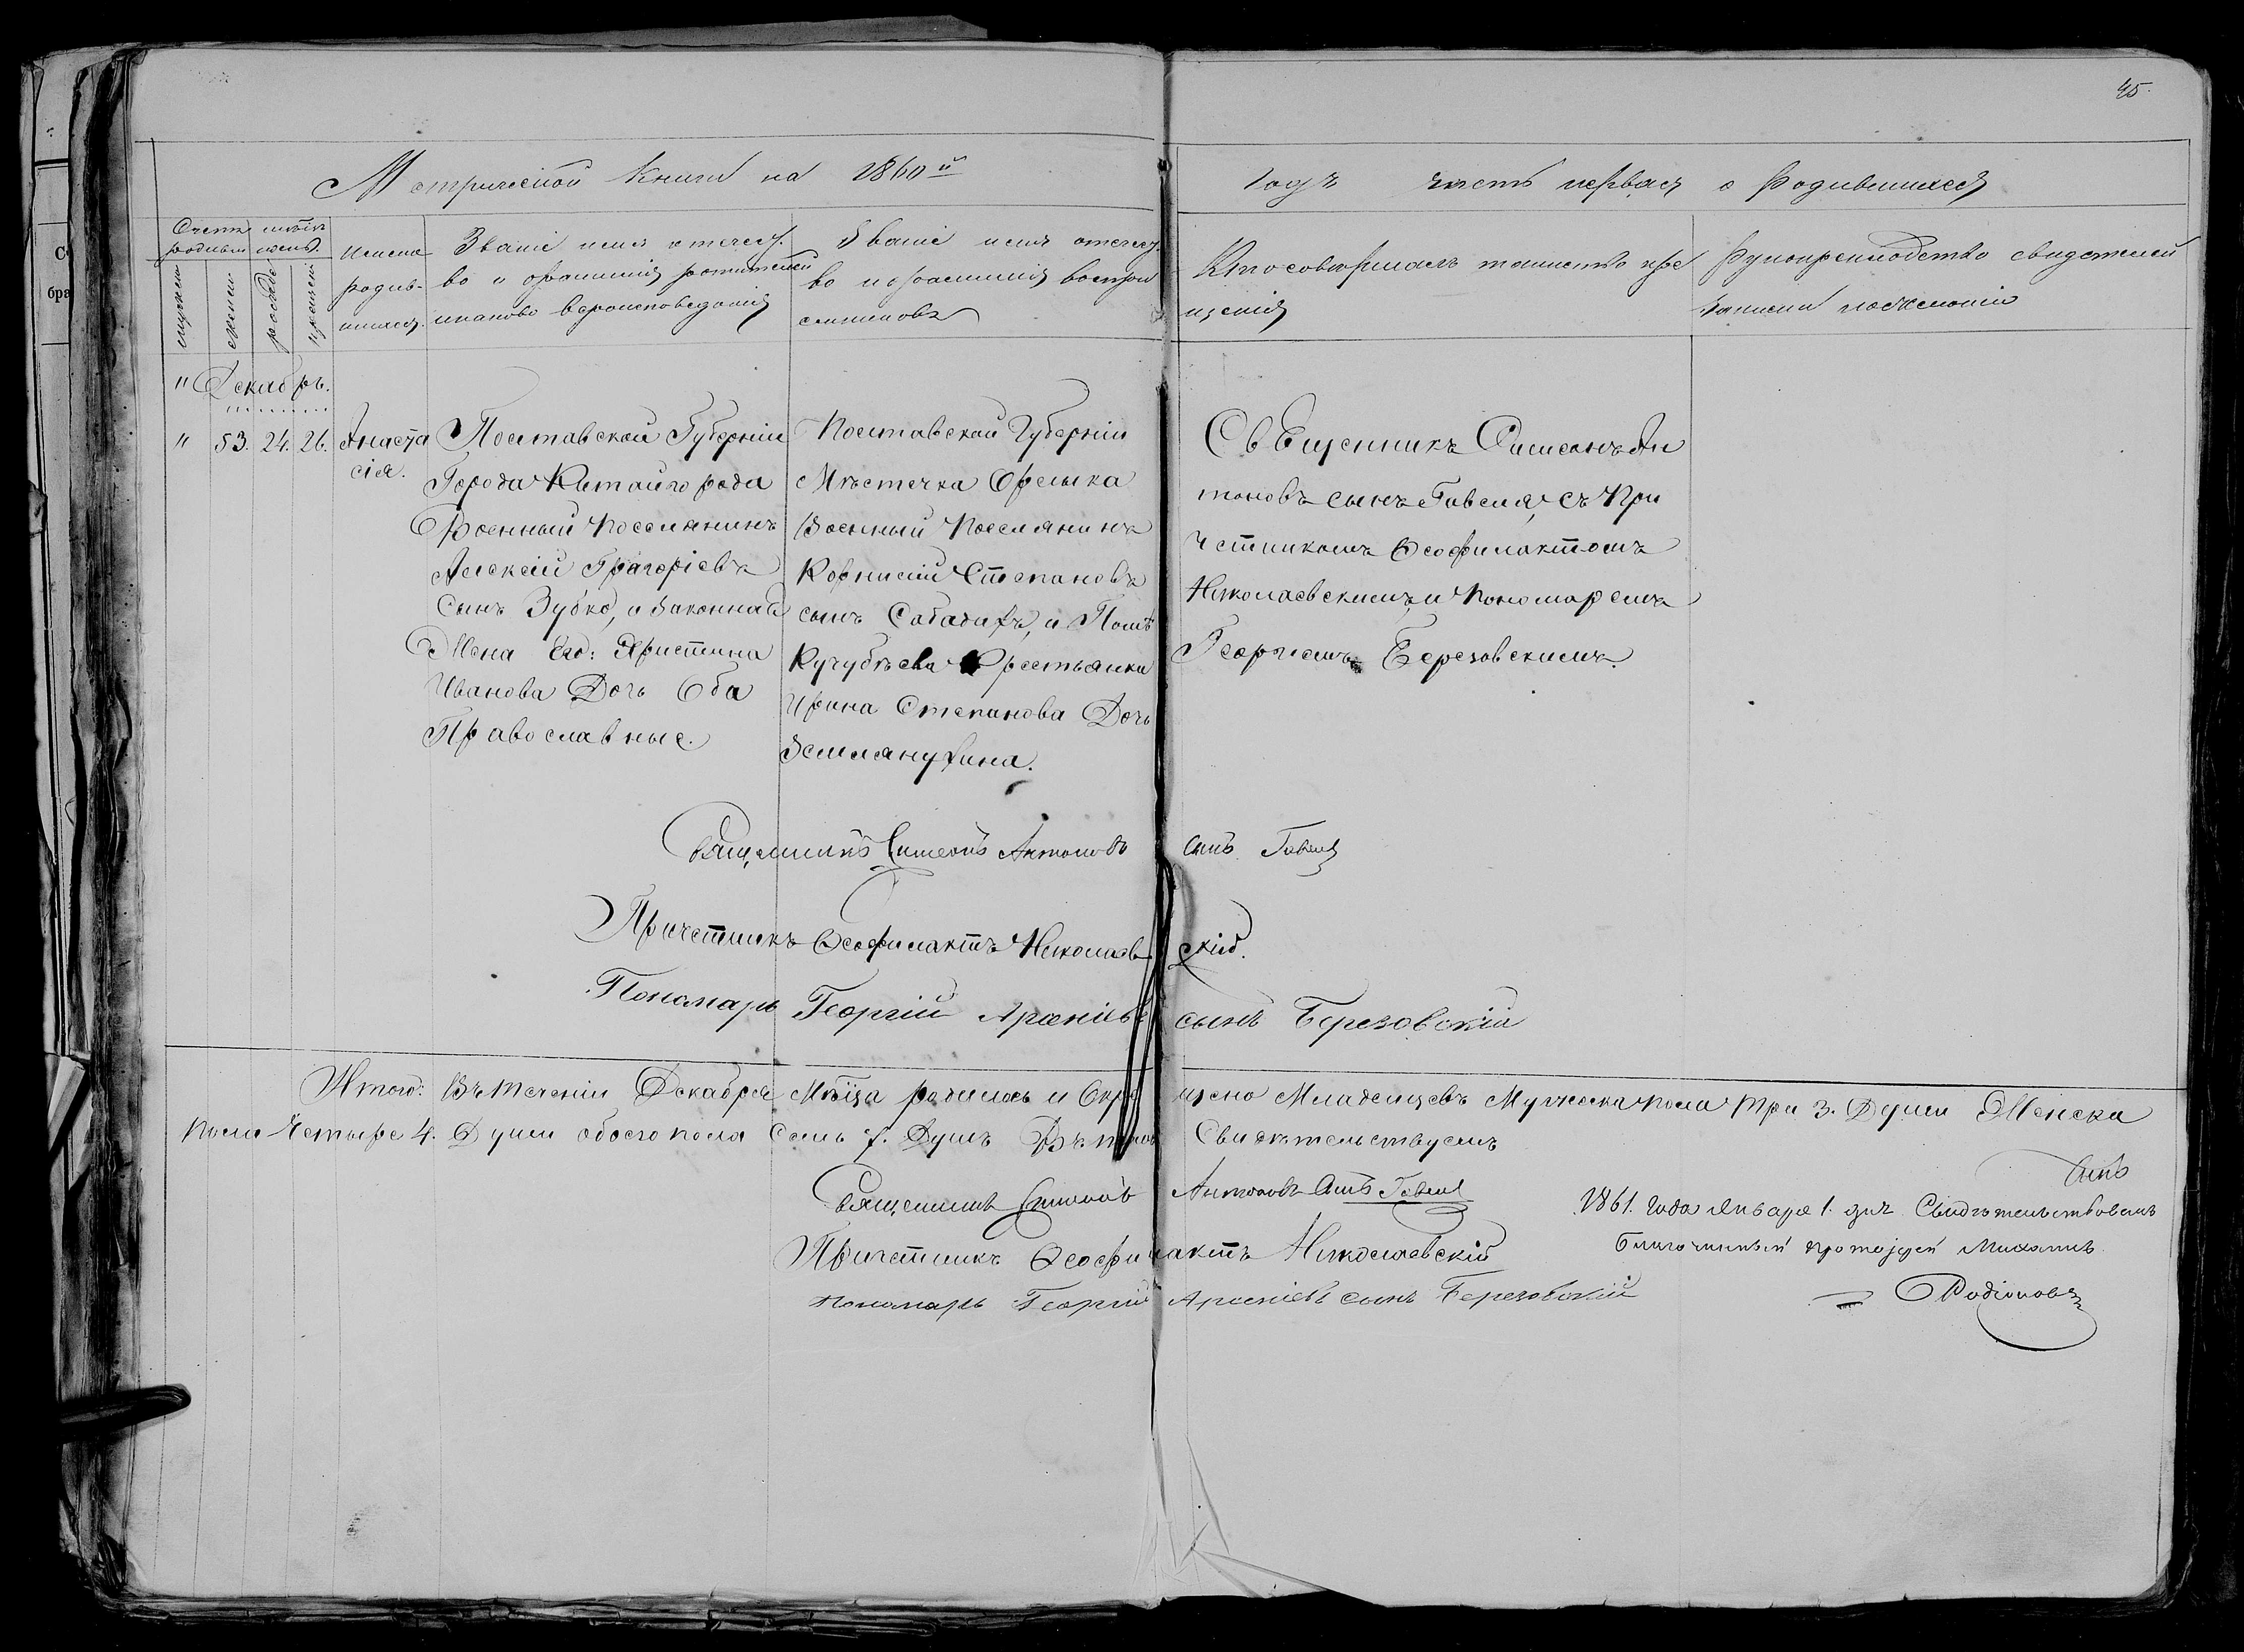 45.
Метрической Книги на 1860й
годъ часть первая о родившихся
Счетъ
родивш
мужеск
женск
рожден
крещен
Имена
родив-
шихся.
Званіе имя отечест.
во и фамилія родителей
и какого вѣроисповеданія
Званіе имя отечест.
во и фамилія воспрі
емниковъ
Кто совершалъ таинство кре
щенія
Рукоприкладство свидетелей
записи по желанію
" Декабрь.
" 53. 24. 26.
Анаста
сія.
Полтавской Губерніи
Города Китайгорода
Военный Поселянинъ
Алексей Григоріевъ
Сынъ Зубко, и Законная
Жена Его: Христина
Иванова Дочь Оба
Православные.
Полтавской Губерніи
Мѣстечка Орелька
Военный Поселянинъ
Корнилій Степановъ
сынъ и Помѣ
Кучубѣева Крестьянка
Ирина Степанова Дочь
Землянухина.
Священникъ Симеонъ Ан
тоновъ сынъ Гавеля, съ При
четникомъ Ѳеофилактомъ
Николаевскимъ, и Пономаремъ
Георгіемъ Березовскимъ.
Священникъ Симеонъ Антоновъ сынъ Гавеля
Причетникъ Ѳеофилактъ Николаевскій.
Пономарь Георгій Арсеніевъ сынъ Березовскій
Итого: Въ теченіи Декабря Мѣсяца родилось и Окрещено Младенцевъ Мужеска пола три 3. Души Женска
пола Четыре 4. Души обоего пола Семь 7. Душъ Въ томъ Свидѣтельствуемъ
Священникъ Симеонъ Антоновъ Сынъ Гавеля
Причетникъ Ѳеофилактъ Николаевскій
Пономарь Георгій Арсеніевъ сынъ Березовскій
1861. года Января 1. дня Свидѣтельствовалъ
Благочинный протоіерей Михаилъ
Родіоновъ